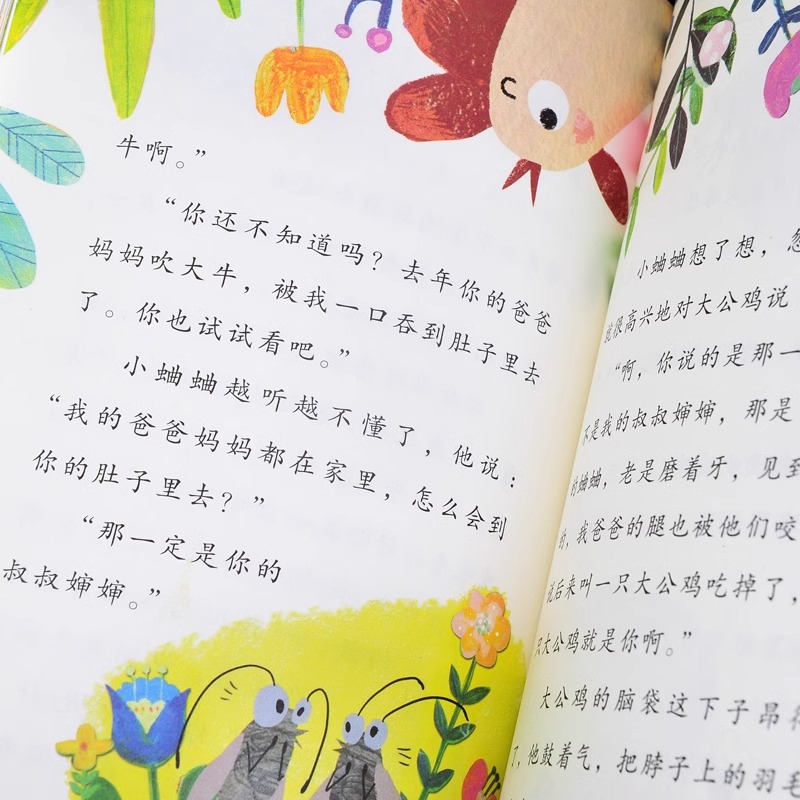 牛啊。”
“你还不知道吗？去年你的爸爸
妈妈吹大牛，被我一口吞到肚子里去
了。你也试试看吧。”
小蛐蛐越听越不懂了，他说：
“我的爸爸妈妈都在家里，怎么会到
你的肚子里去？”
“那一定是你的
叔叔婶婶。”
小蛐蛐想了想，忽
就很高兴地对大公鸡说
“啊，你说的是那一
不是我的叔叔婶婶，那是
的蛐蛐，老是磨着牙，见到
的，我爸爸的腿也被他们咬
说后来叫一只大公鸡吃掉了，
只大公鸡就是你啊。”
大公鸡的脑袋这下子昂得
了，他鼓着气，把脖子上的羽毛